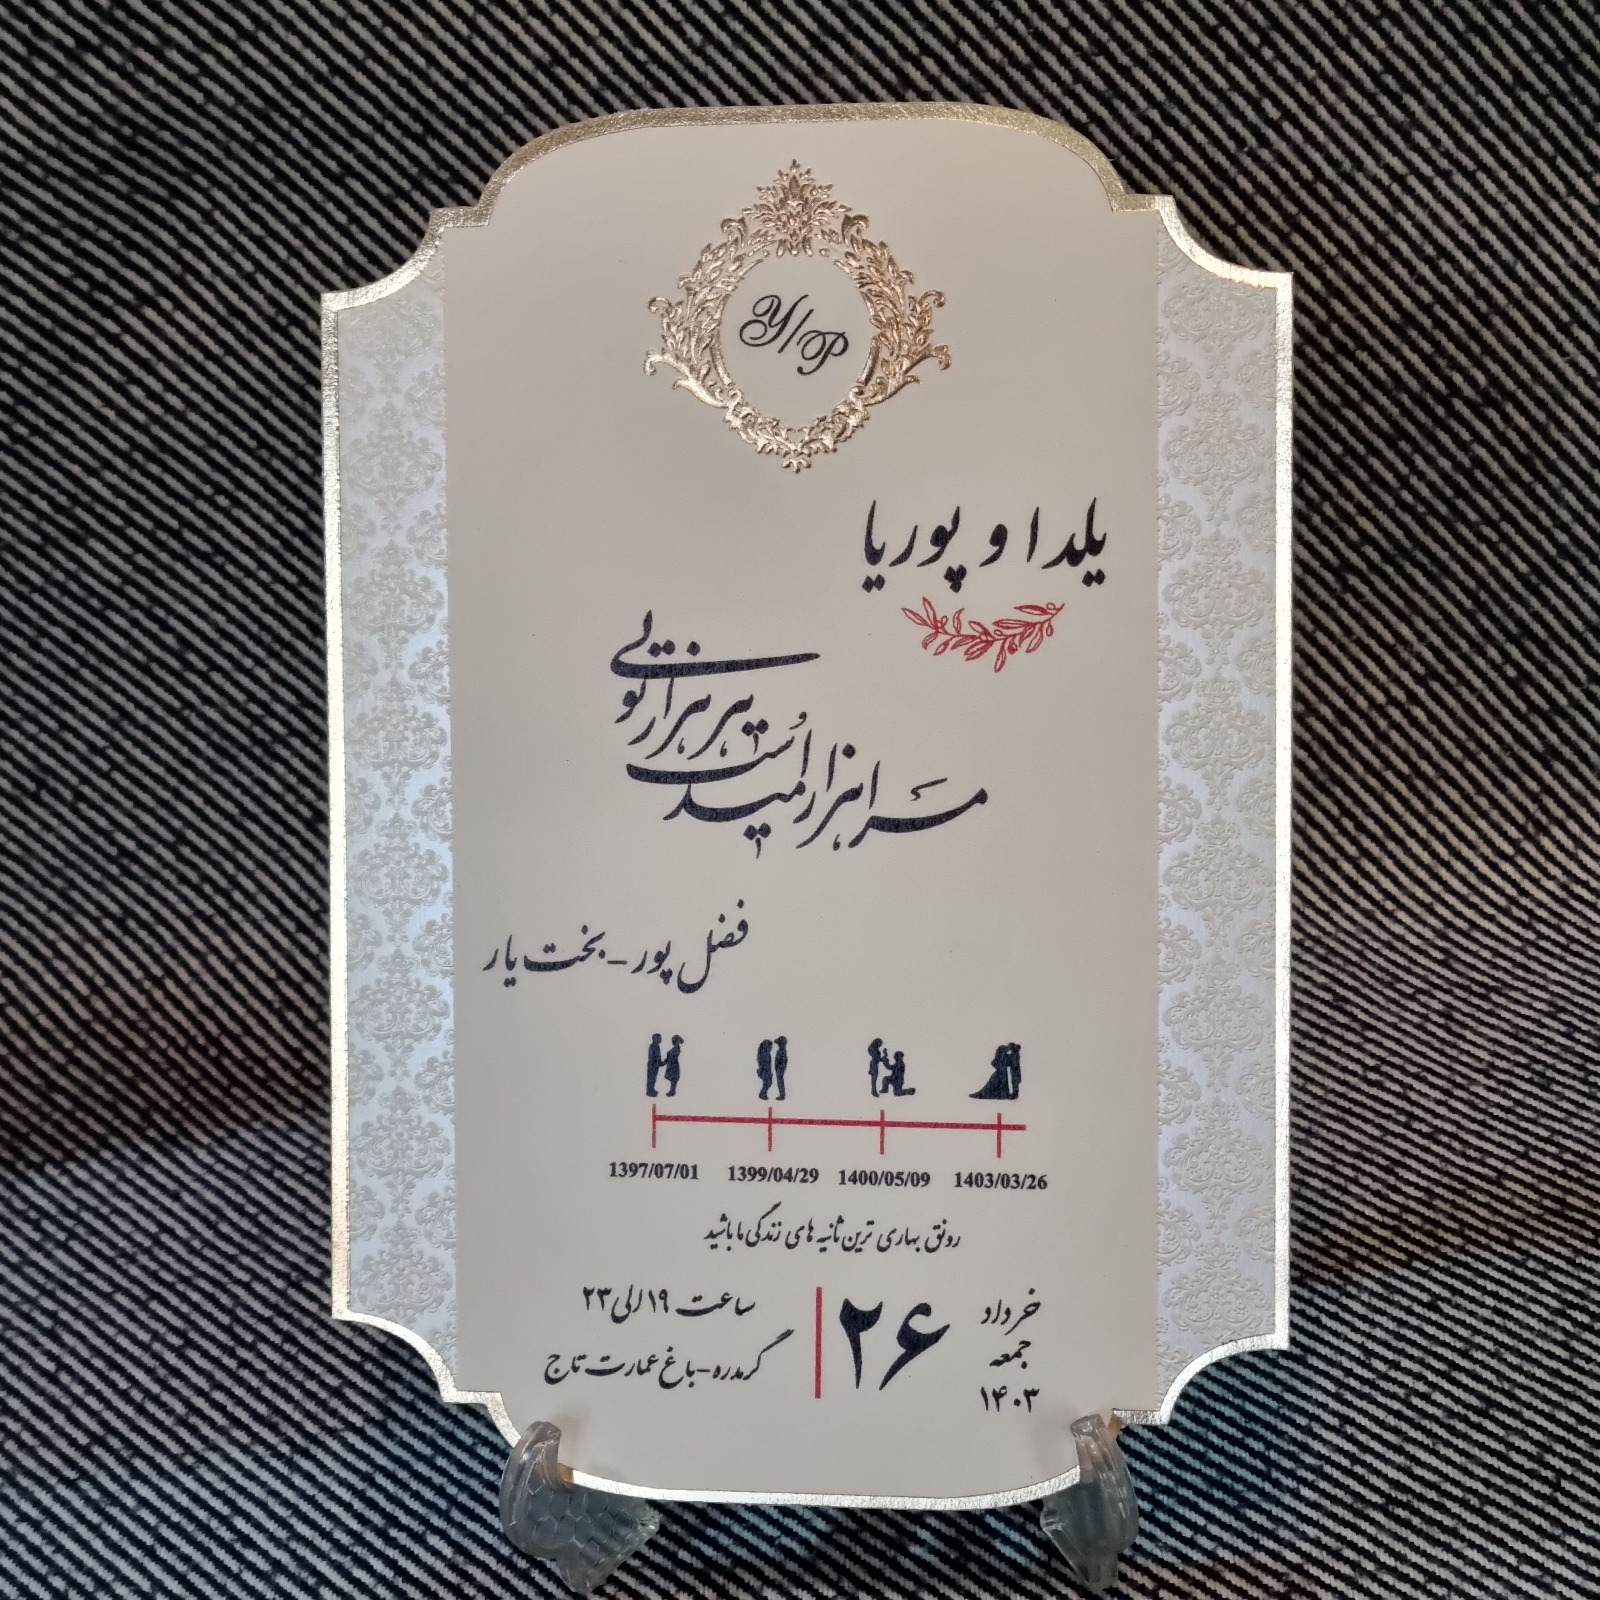 Y/P
یلدا و پوریا
مرا هزار امید است
و هر هزار تویی
فضل پور - بخت یار
1397/07/01 1399/04/29 1400/05/09 1403/03/26
رونق بهاری ترین ثانیه های زندگی ما باشید
خرداد
جمعه
۱۴۰۳
۲۶
ساعت ۱۹ الی ۲۳
گرمدره - باغ عمارت تاج